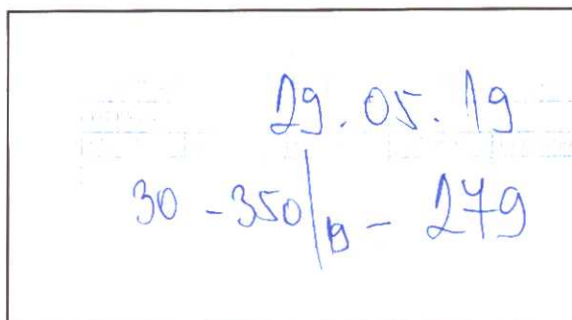 29.05.19
30-350/19-279